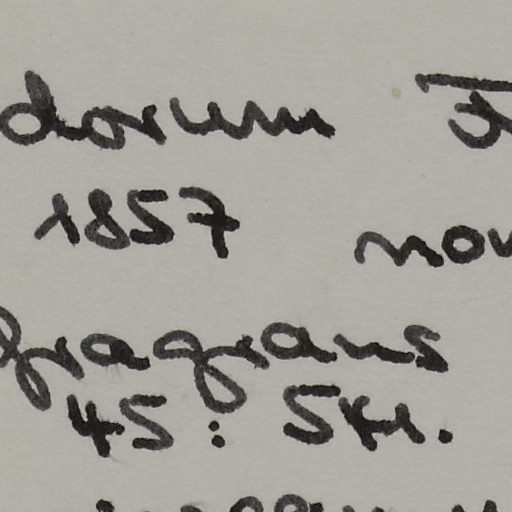 dorum
1857 nov
fragrans
45: 5Kl.